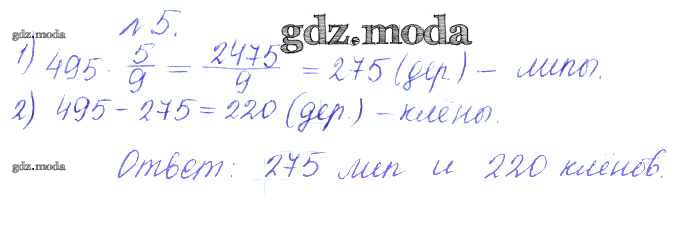 № 5.
gdz.moda
gdz.moda
1) 495 · 5/9 = 2475/9 = 275 (дер.) – липы.
2) 495 – 275 = 220 (дер.) – клёны.
gdz.moda
Ответ: 275 лип и 220 клёнов.